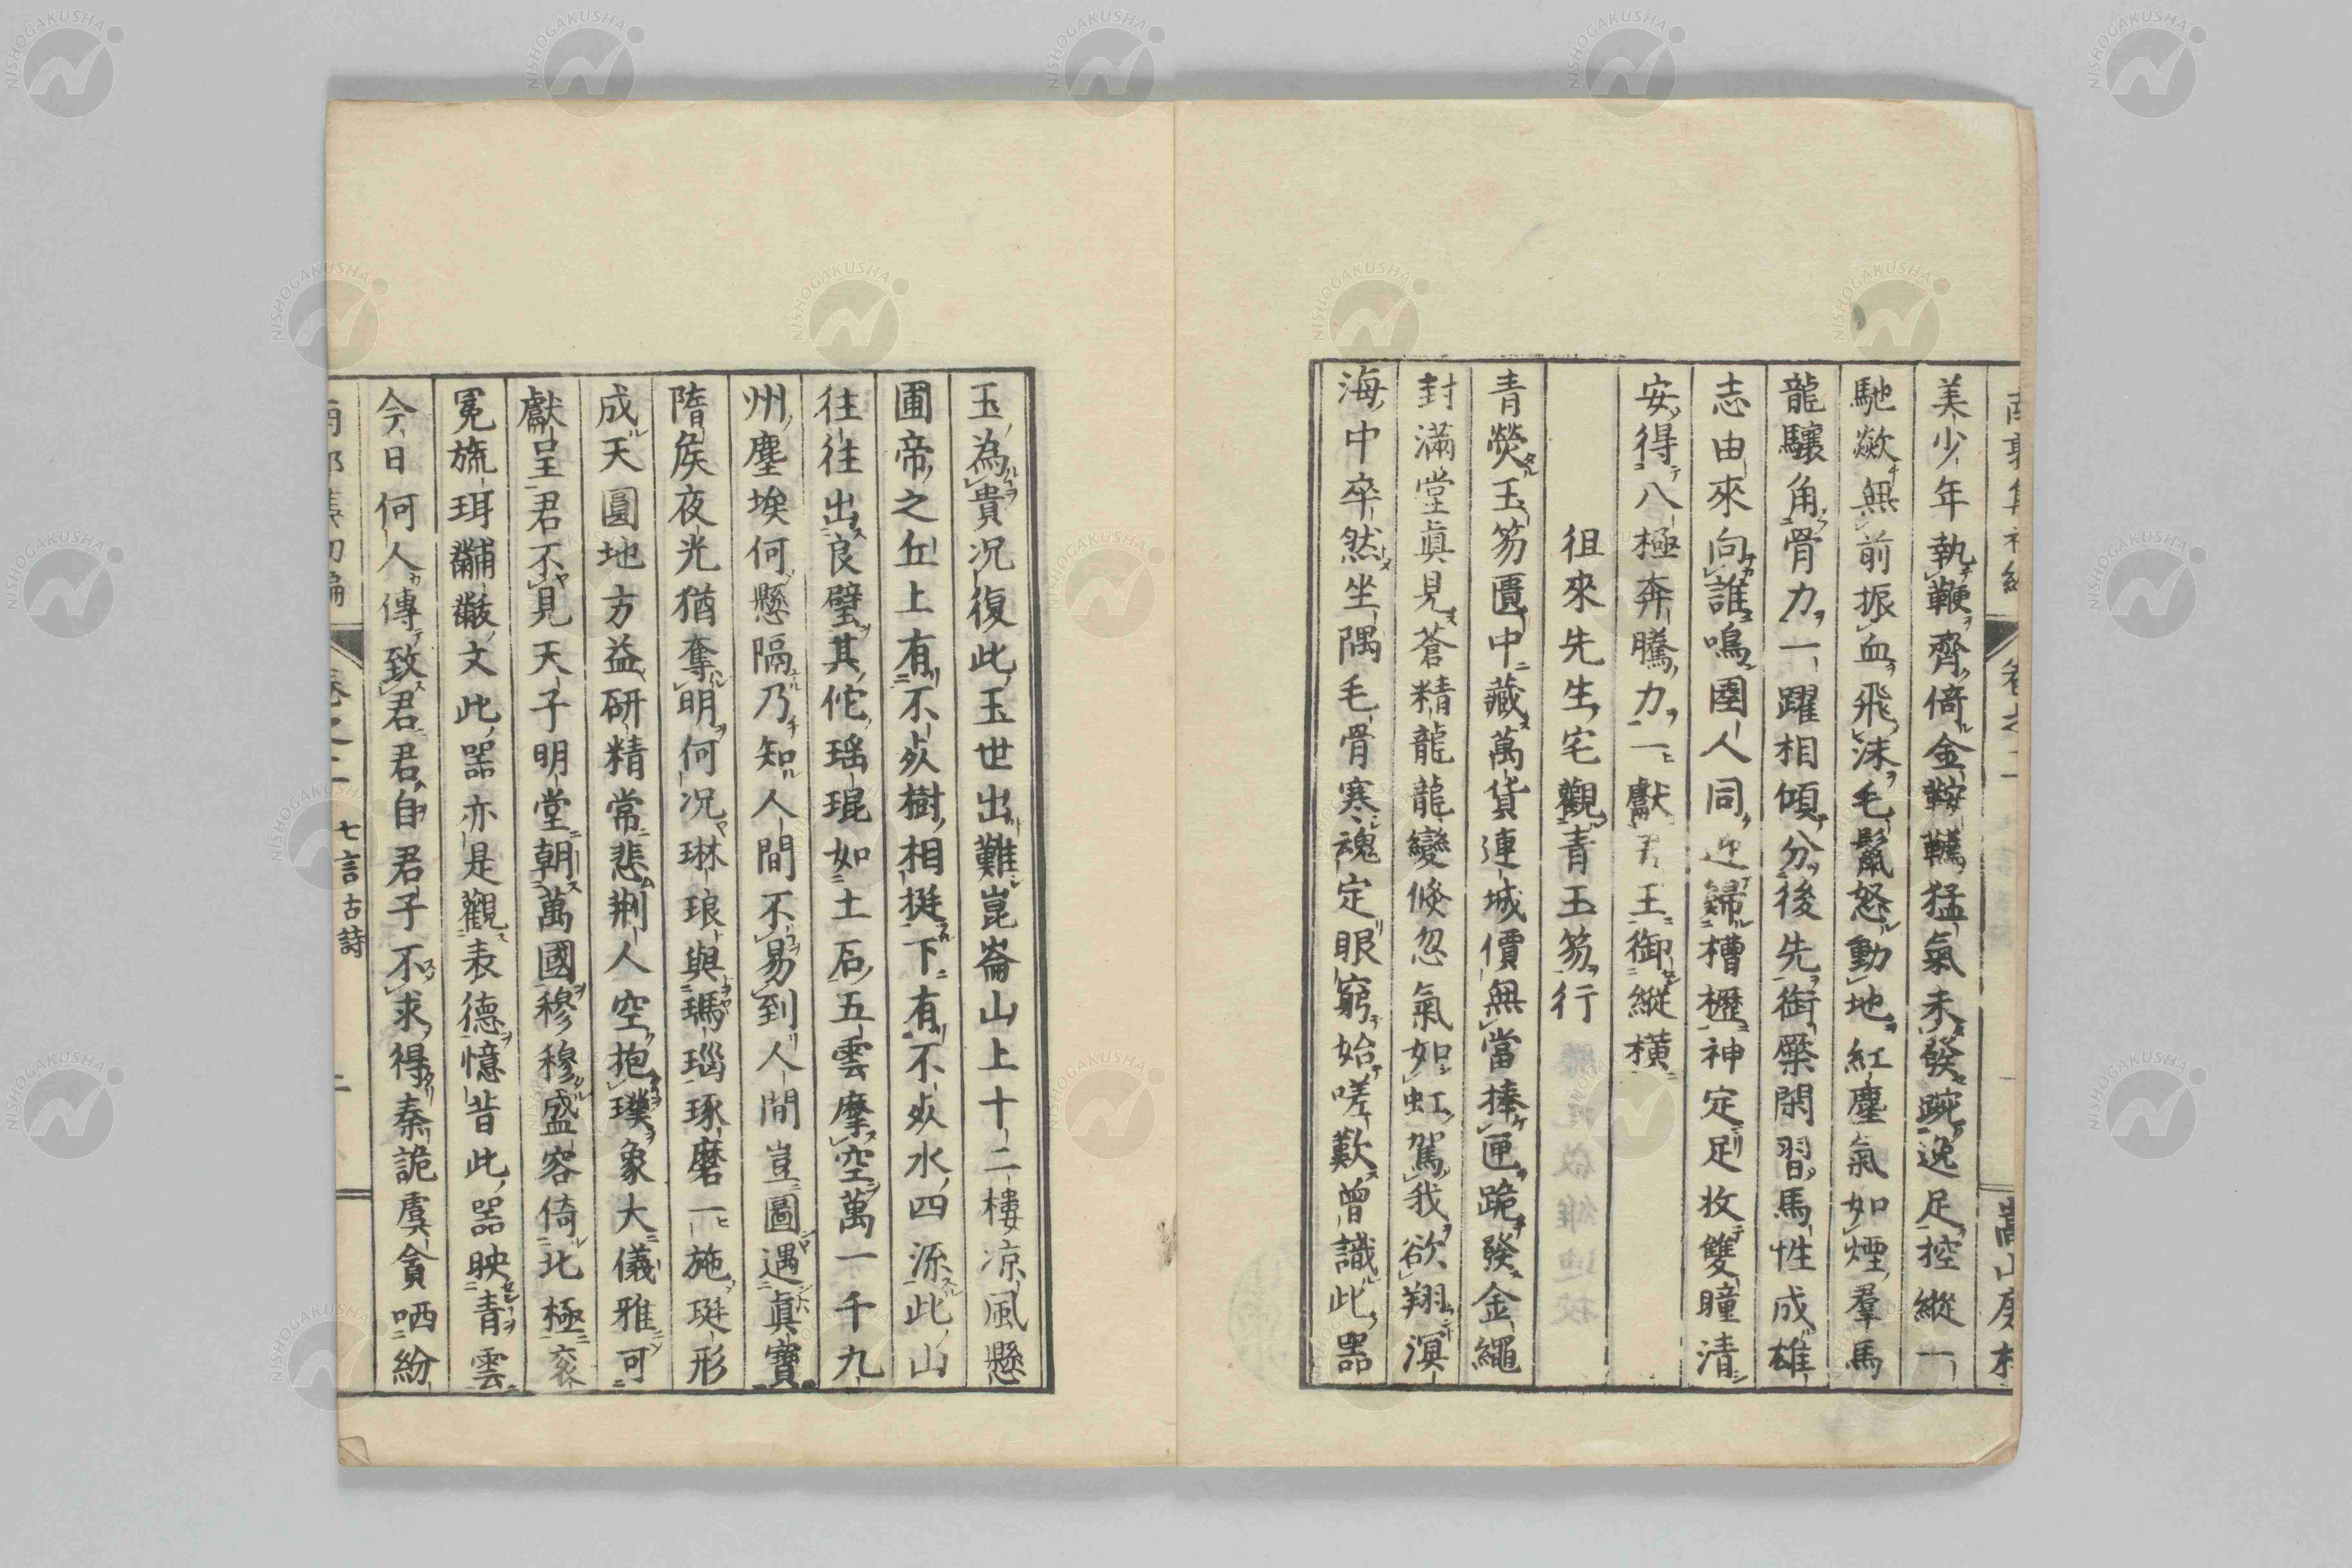 美少年執鞭齊倚金鞍韉猛氣未發踠逸足控縱一
馳歘無前振血飛沫毛鬣怒動地紅塵氣如煙羣馬
龍驤角骨力一躍相傾分後先銜橜閑習馬性成雄
志由來向誰鳴圉人同迎歸槽櫪神定足收雙瞳清
安得八極奔騰力一獻君王御縱橫
徂來先生宅觀青玉笏行
青熒玉笏匱中藏萬貨連城價無當捧匣跪發金繩
封滿堂眞見蒼精龍龍變倏忽氣如虹駕我欲翔溟
海中卒然坐隅毛骨寒魂定眼窮始嗟歎曾識此器
玉為貴況復此玉世出難崑崙山上十二樓涼風懸
圃帝之丘上有不死樹相挺下有不死水四源此山
往往出良璧其佗瑶琨如土石五雲摩空萬一千九
州塵埃何懸隔乃知人間不易到人間豈圖遇眞寶
隋矦夜光猶奪明何況琳琅與瑪瑙琢磨一施珽形
成天圓地方益研精常悲荆人空抱璞象大儀雅可
獻呈君不見天子明堂朝萬國穆穆盛容倚北極衮
冕旒珥黼黻文此器亦是觀表德憶昔此器映青雲
今日何人傳致君君自君子不求得秦詭虞貪哂紛
七言古詩